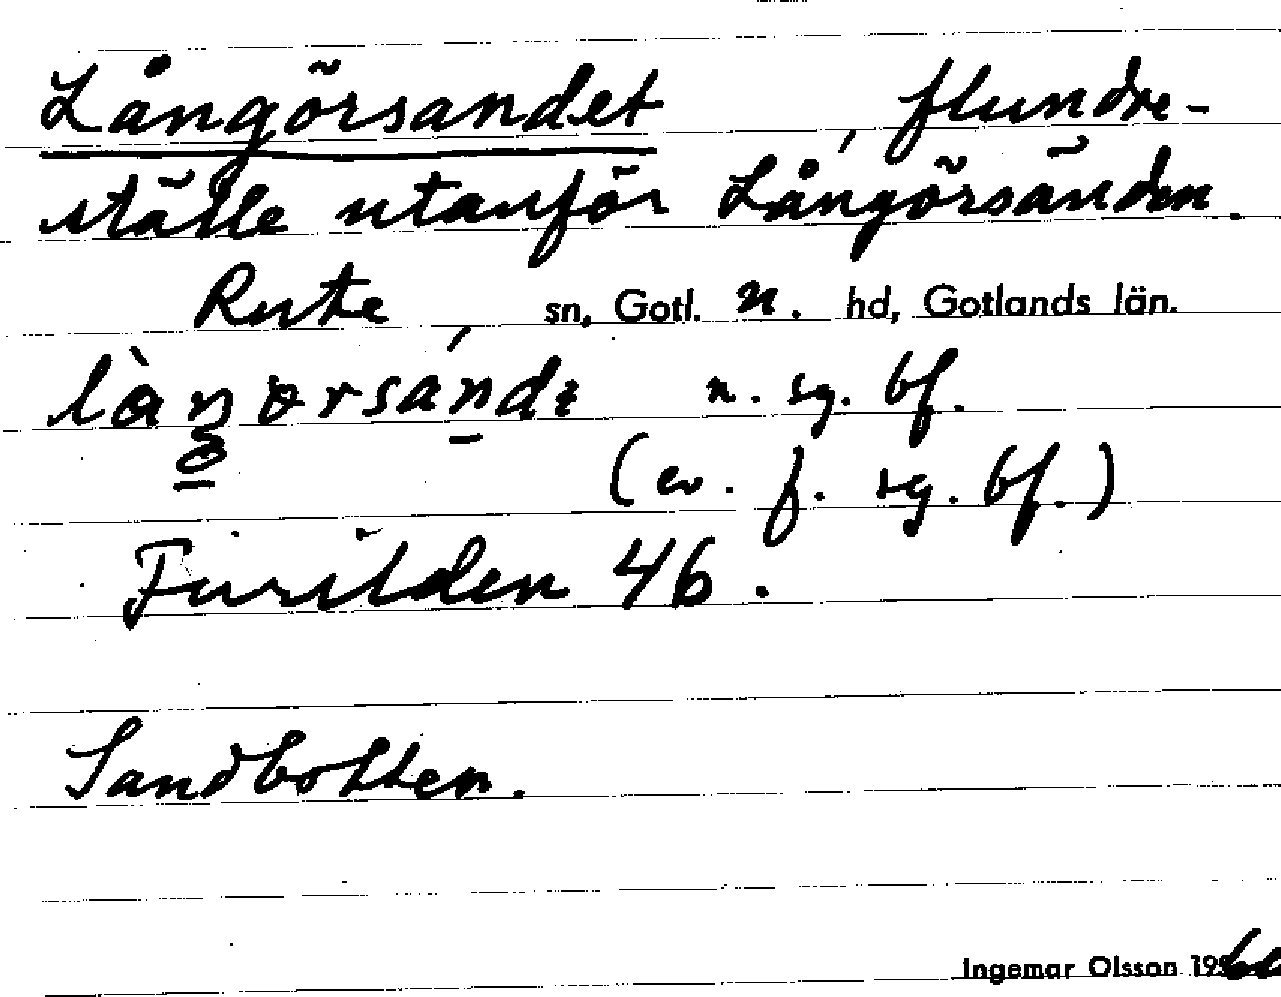 Långörsandet, flundre-
ställe utanför Långörsänden.
Rute sn, Gotl. n. hd, Gotlands län.
n. sg. bf.
(ev. f. sg. bf.)
Furilden 46.
Sandbotten.
Ingemar Olsson